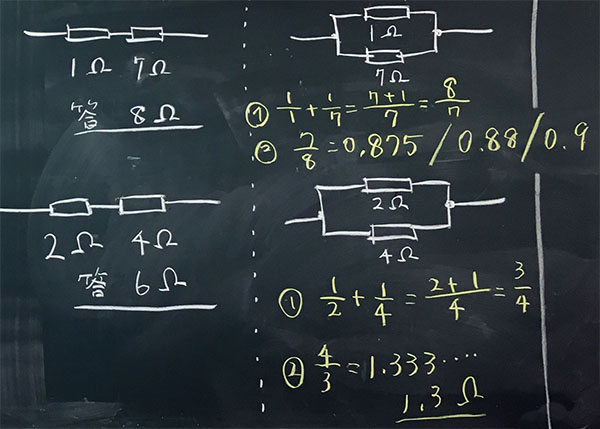 1Ω 7Ω
答 8Ω
2Ω 4Ω
答 6Ω
1Ω
7Ω
① 1/1 + 1/7 = 7+1/7 = 8/7
② 7/8 = 0.875 / 0.88 / 0.9
2Ω
4Ω
① 1/2 + 1/4 = 2+1/4 = 3/4
② 4/3 = 1.333‥‥
1.3Ω